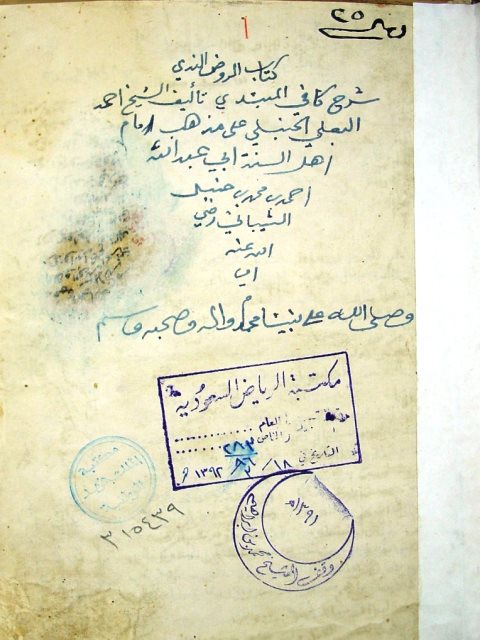 ٢٥
١
كتاب الروض الندي
شرح كافي المبتدي تأليف الشيخ احمد
البعلي الحنبلي على مذهب امام
اهل السنة ابي عبد الله
احمد بن محمد بن حنبل
الشيباني رضي
الله عنه
وصلى الله على نبينا محمد واله وصحبه وسلم
مكتبة الرياض السعوديه
العام
والخاص ٢٨٣
التاريخ في ١٨ / / ١٣٩٢ هـ
١٣٩١هـ
وقف الشيخ محمد بن
٣١٥٤٣٩